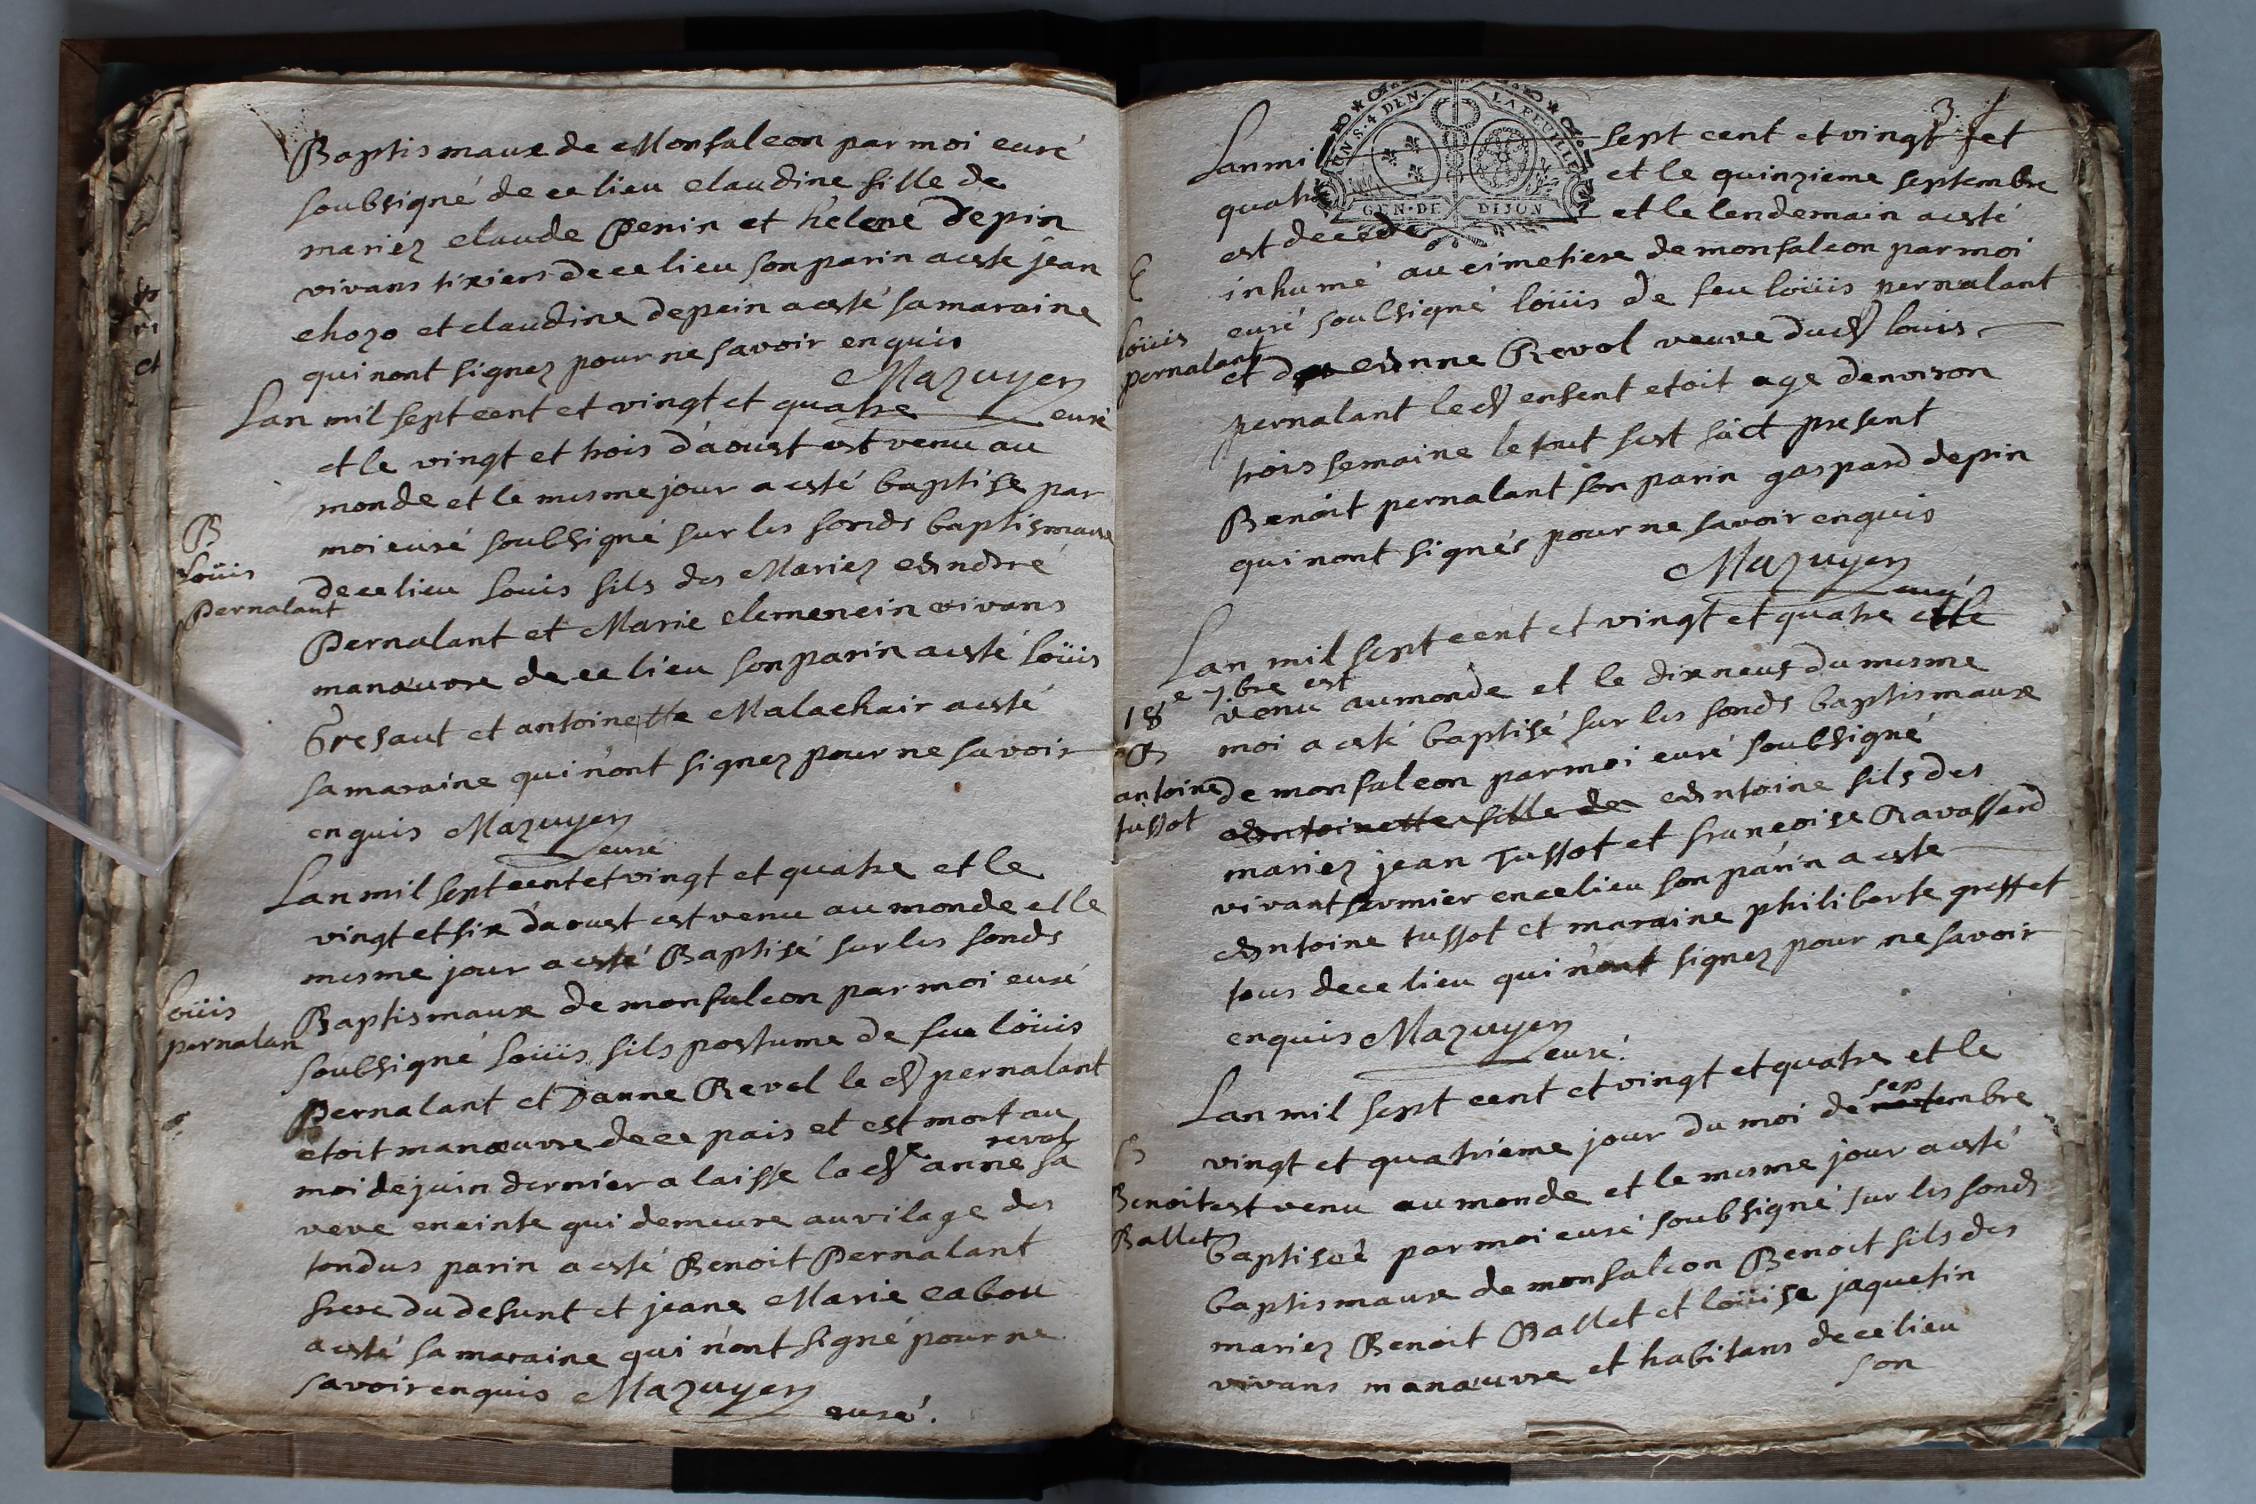 Baptismaux de Monfalcon par moi curé
soubsigné de ce lieu claudine fille de
mariez claude Penin et helene Depin
vivans tixiers de ce lieu son parin a esté jean
chozo et claudine depein a esté sa maraine
qui nont signez pour ne savoir enquis
Mazuyer
curé
Lan mil sept cent et vingt et quatre
et le vingt et trois d'aoust est venu au
monde et le mesme jour a esté baptisé par
moi curé soubsigné sur les fonds baptismaux
B
Loüis
Pernalant
de ce lieu Louis fils des Mariez André
Pernalant et Marie clemencin vivans
manœuvre de ce lieu son parin a esté Loüis
Gresaut et antoinette Malachair a esté
sa maraine qui n'ont signez pour ne savoir
enquis Mazuyer
curé
Lan mil sept cent et vingt et quatre et le
vingt et six d'aoust est venu au monde et le
mesme jour a esté Baptisé sur les fonds
Loüis
pernalan
Baptismaux de monfalcon par moi curé
soubsigné Loüis fils postume de feu Loüis
Pernalant et Danne Revol le d pernalant
etoit manœuvre de ce pais et est mort au
moi de juin dernier a laisse la de anne revol sa
veve enceinte qui demeure au vilage des
tondus parin a esté Benoit Pernalant
frere du defunt et jeane Marie cabou
a esté sa maraine qui n'ont signé pour ne
savoir enquis Mazuyer
curé.
3
UN S. 4 DEN. LA FEUILLE
GEN. DE DIJON
Lan mil sept cent et vingt et
quatre et le quinzieme septembre
est decedé et le lendemain a esté
inhumé au cimetiere de monfalcon par moi
curé soubsigné loüis de feu loüis pernalant
Loüis
pernalant
et d Anne Revol veuve dud louis
pernalant led enfent etoit age denviron
trois semaine le tout sest fäct present
Benoit pernalant son parin gaspard depin
qui nont signés pour ne savoir enquis
Mazuyer
curé
Lan mil sept cent et vingt et quatre et le
18e 7bre est
venu au monde et le dix neuf du mesme
moi a esté baptisé sur les fonds baptismaux
B
antoine
tussot
de monfalcon par moi curé soubsigné
Antoinette fille de Antoine fils des
mariez jean Tussot et françoise Ravassard
vivant fermier en ce lieu son parin a esté
Antoine tussot et maraine philiberte gresset
tous de ce lieu qui n'ont signez pour ne savoir
enquis Mazuyer
curé.
Lan mil sept cent et vingt et quatre et le
vingt et quatriéme jour du moi de septembre
B
Benoit
Ballet
est venu au monde et le mesme jour a esté
baptiséé par moi curé soubsigné sur les fonds
baptismaux de monfalcon Benoit fils des
mariez Benoit Ballet et loüise jaquetin
vivans manœuvre et habitans de ce lieu
son